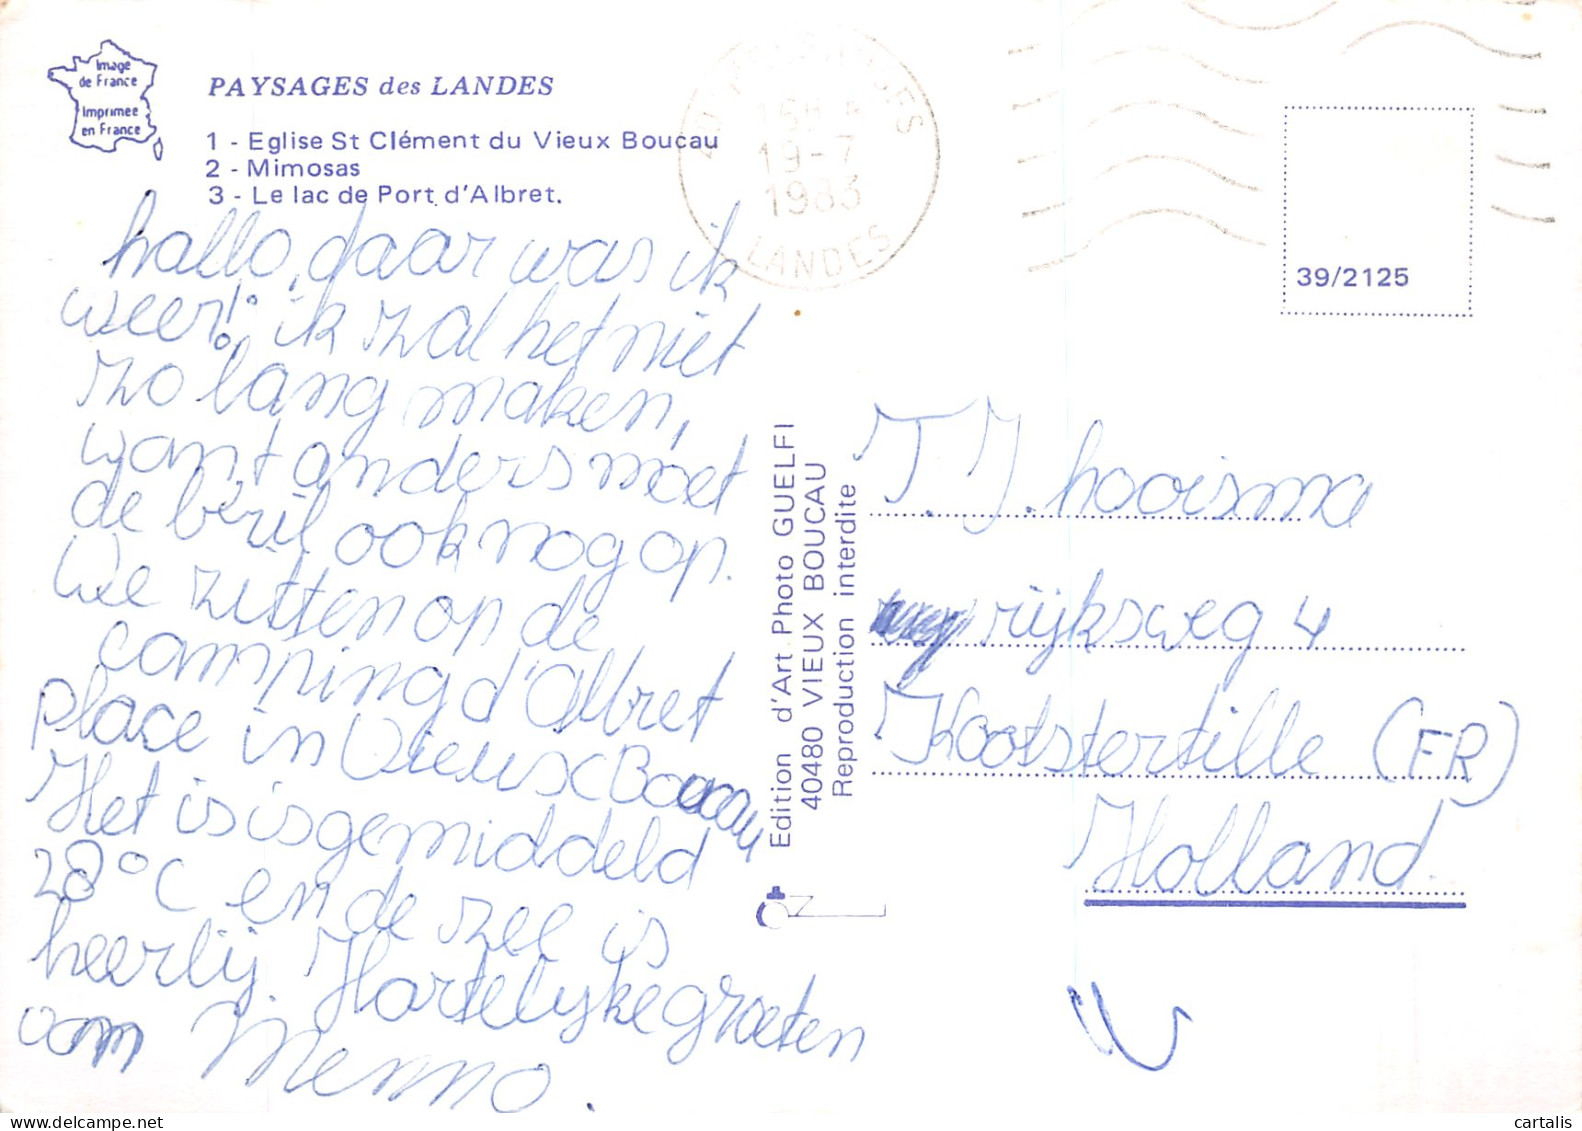 Image
de France
Imprimée
en France
PAYSAGES des LANDES
1 - Eglise St Clément du Vieux Boucau
2 - Mimosas
3 - Le lac de Port d'Albret.
16H
19-7
1983
LANDES
39/2125
hallo, daar was ik
weer! ik zal het niet
zo lang maken,
want anders moet
de béril ook nog op.
We zitten op de
camping d'Albret
place in Vieux Boucau
Het is is gemiddeld
28°C en de zee is
heerlij. Hartelijke groeten
van Menno.
Edition d'Art Photo GUELFI
40480 VIEUX BOUCAU
Reproduction interdite
T. J. hooisma
rijksweg 4
Kootstertille (FR)
Holland
cartalis